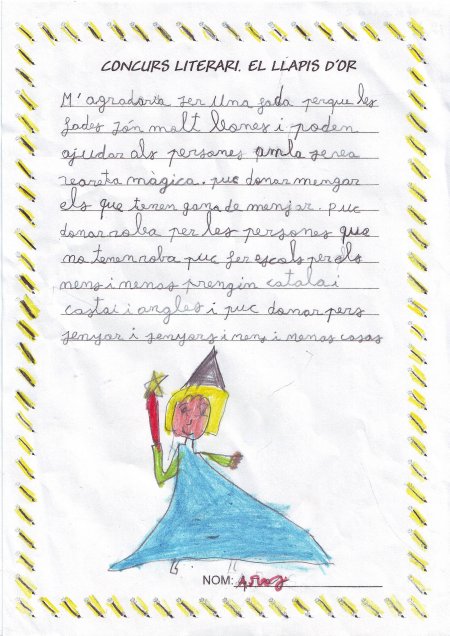 CONCURS LITERARI. EL LLAPIS D'OR
M'agradaria ser una fada perque les
fades són molt bones i poden
ajudar als persones amb la seva
vareta màgica. puc donar mengar
els que tenen gana de menjar. puc
donar roba per les persones que
no tenen roba puc fer escols per als
nens i nenas prengin catala i
castai i angles i puc donar pers
senyor i senyors i nens i nenas casas
NOM: